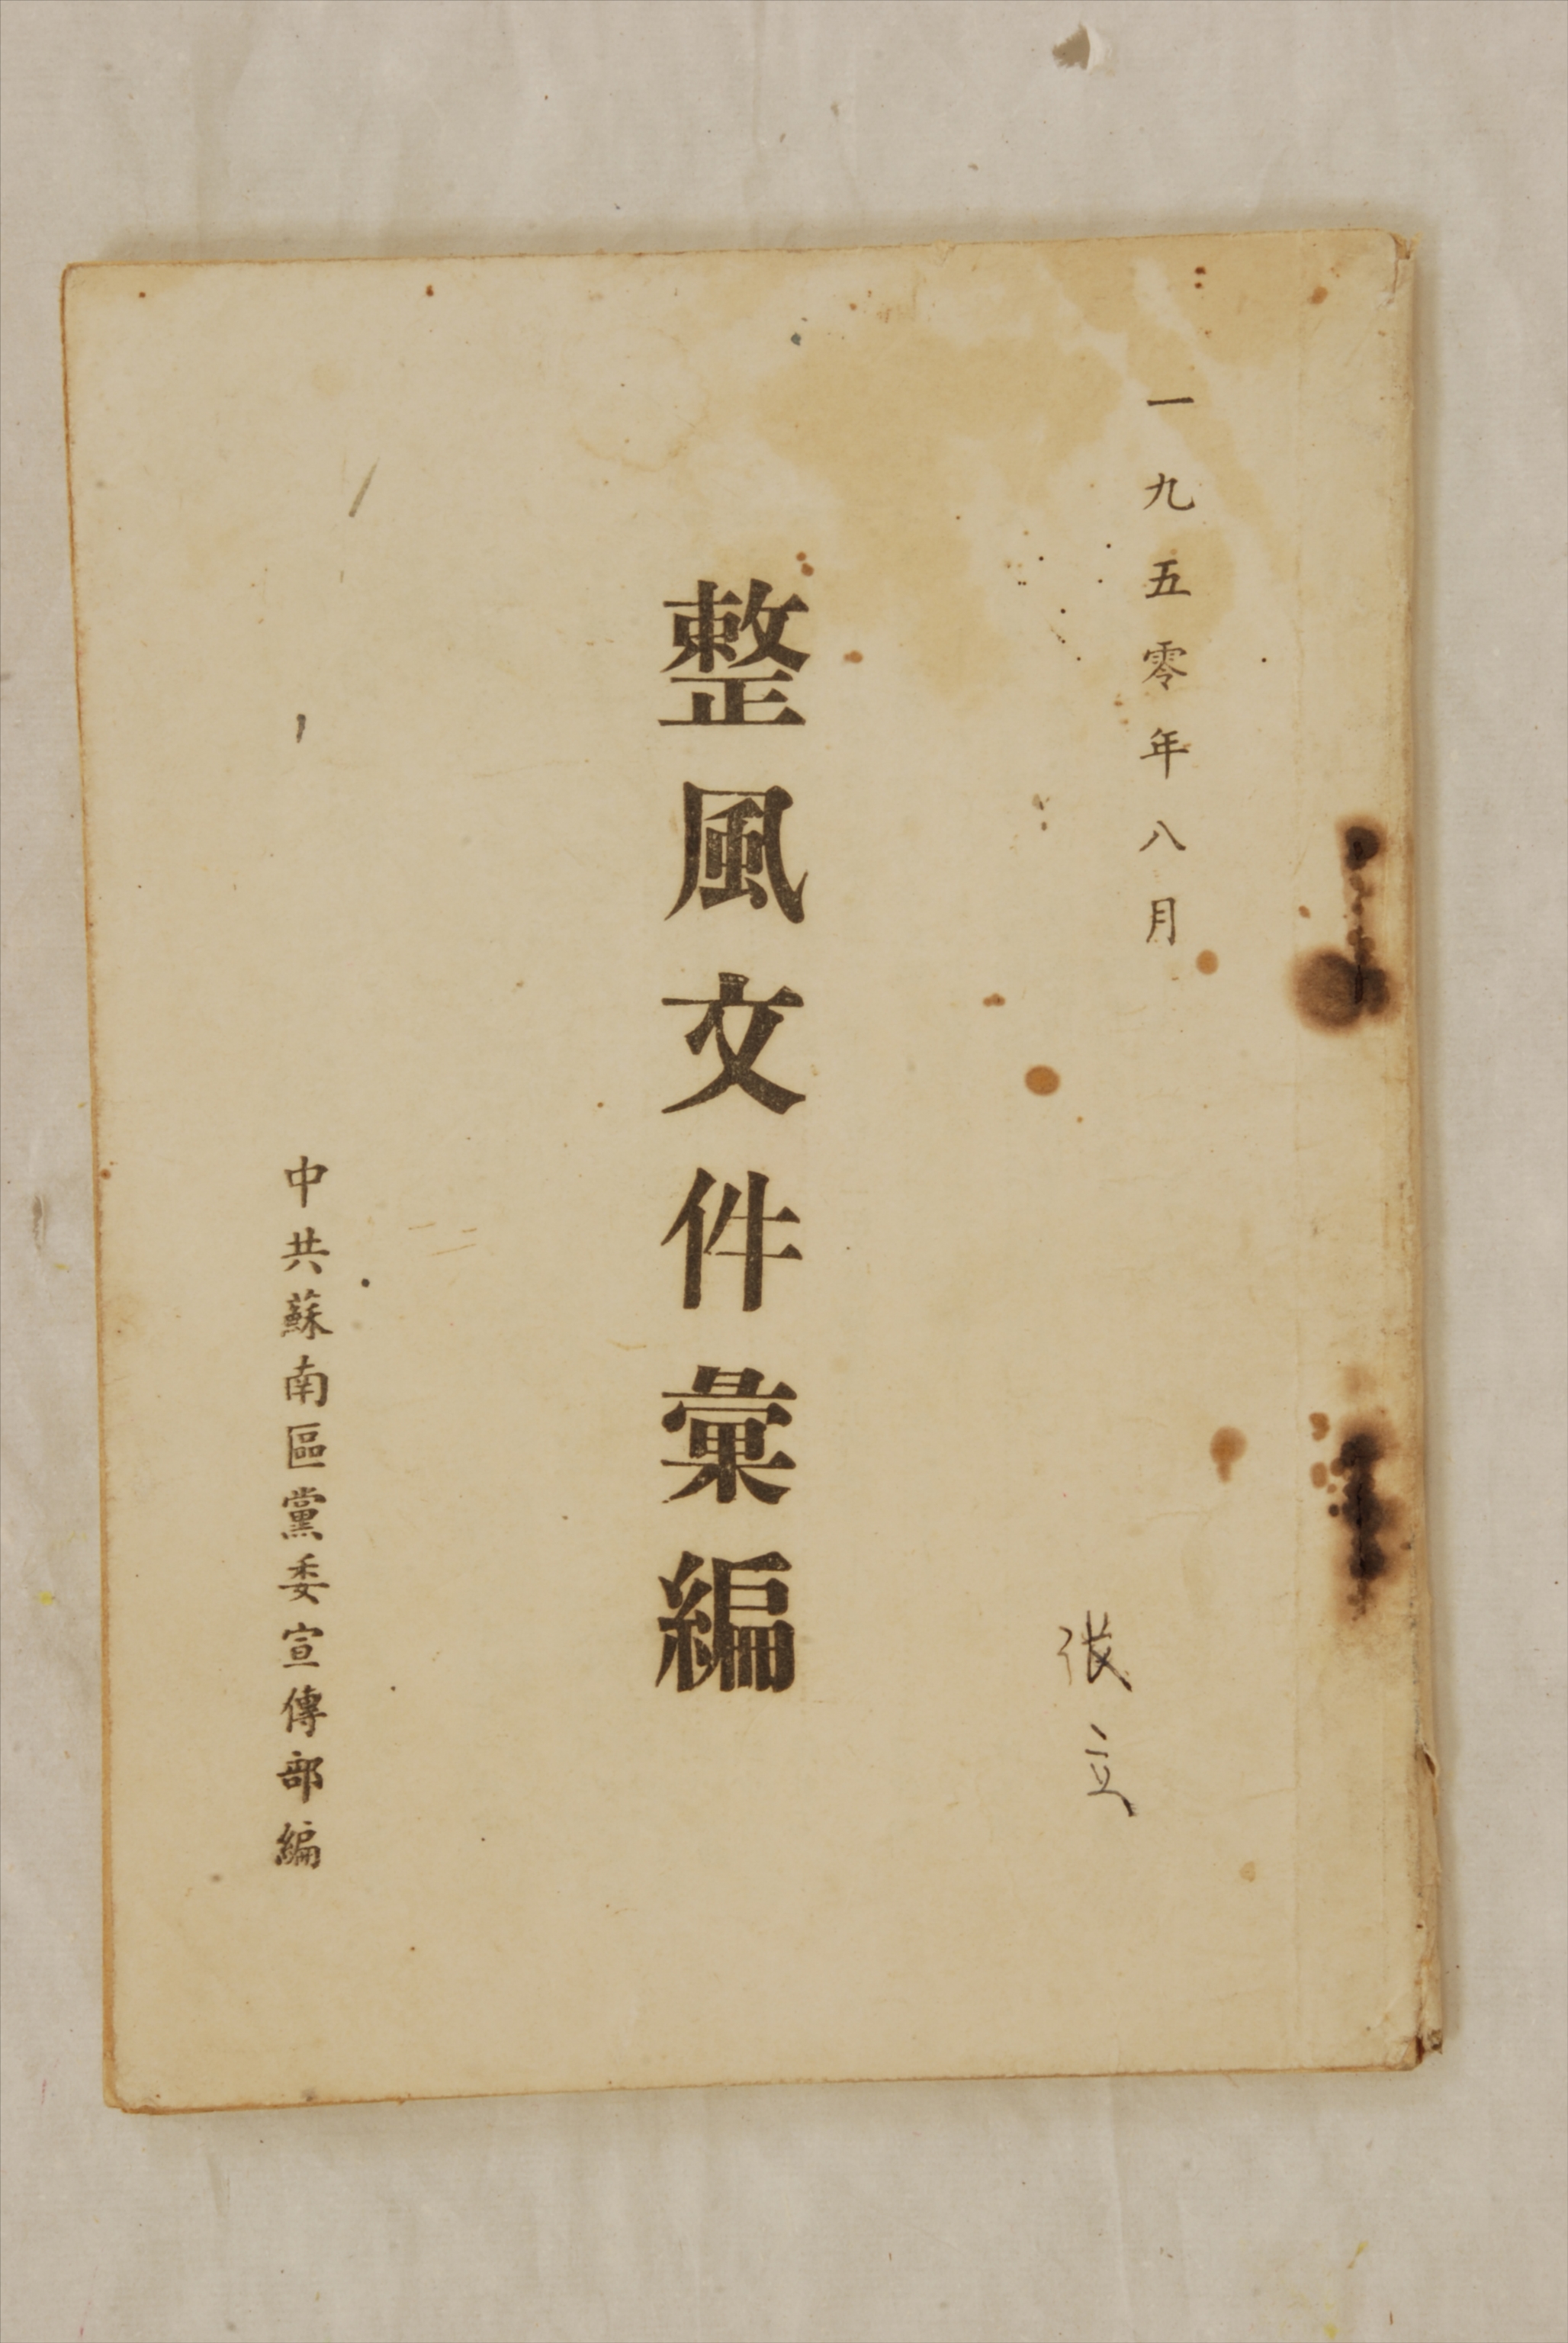 一九五零年八月
張立
整風文件彙編
中共蘇南區黨委宣傳部編